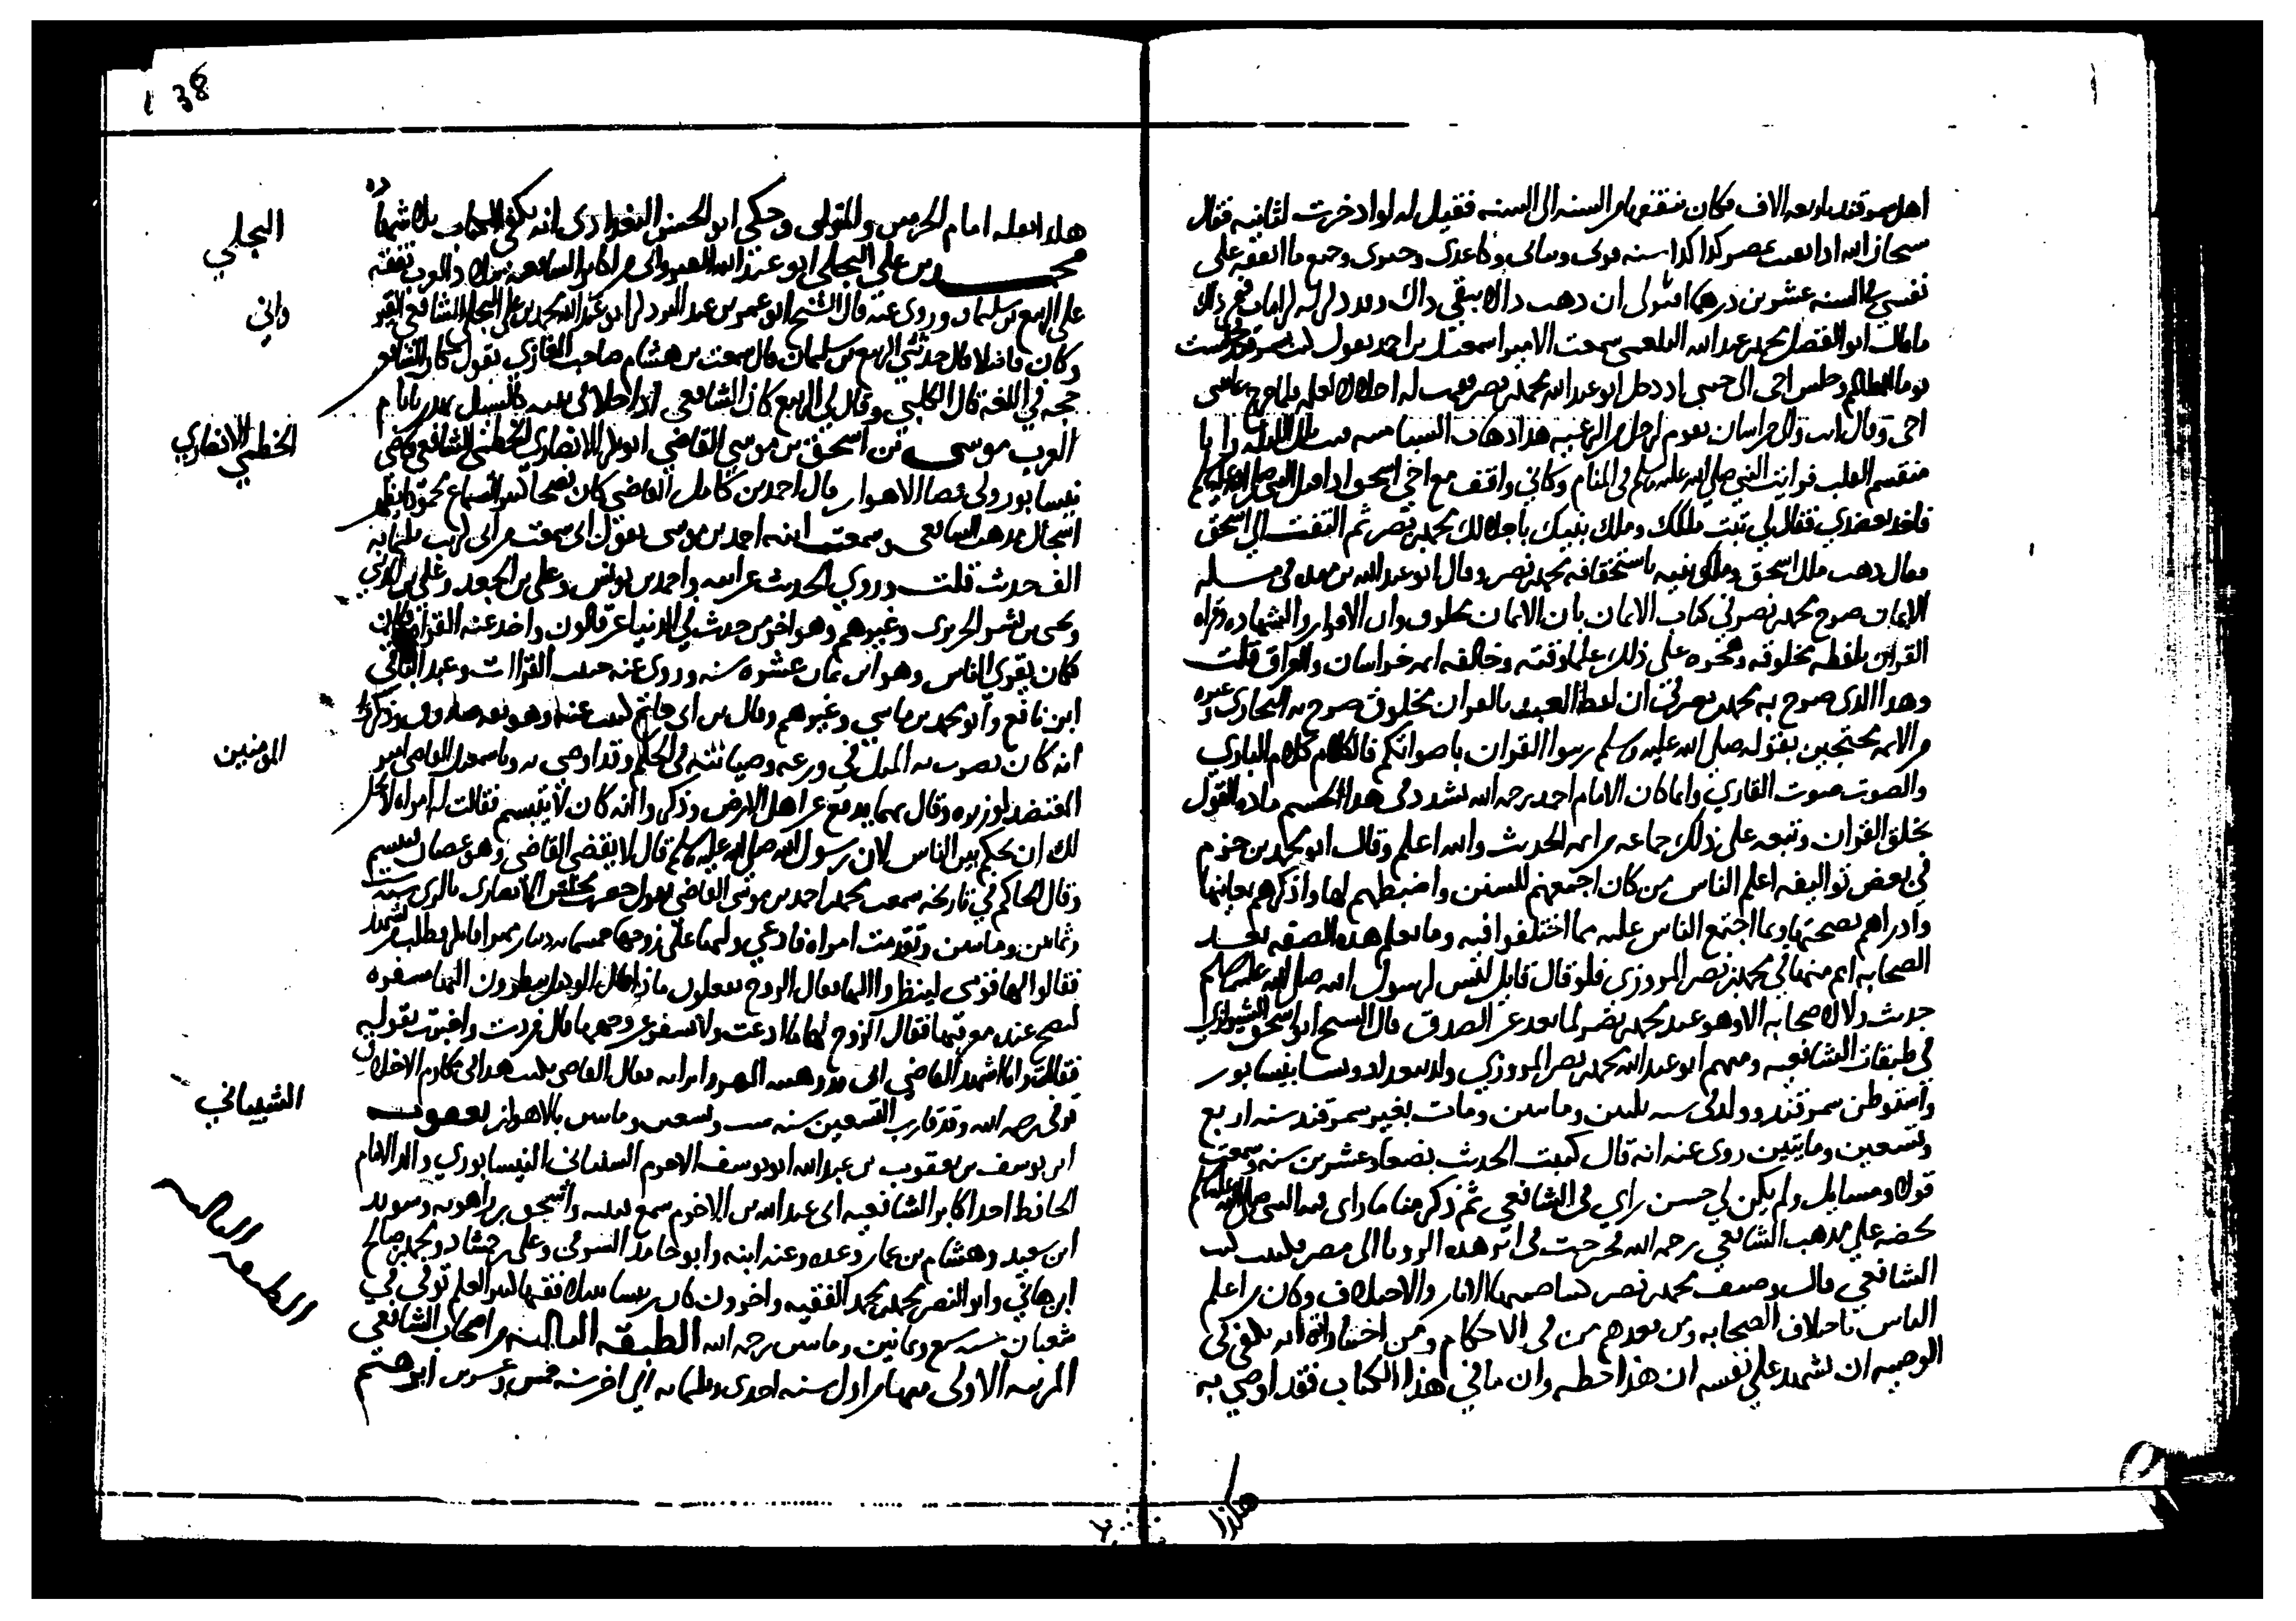 اهل سمرقند اربعه الاف فكان ينفقها من السنه الى السنه فقيل له لو ادخرت لنائبه فقال
سبحان الله انا بقيت بمصر كذا كذا سنه قوتي وثيابي وكاغدي وحبري وجميع ما انفقه على
نفسي في السنه عشرين درهما افترى ان ذهب ذا لا يبقى ذاك
وقال ابو الفضل محمد بن عبد الله البلعمي سمعت الامير اسمعيل بن احمد يقول كنت بسمرقند فجلست
يوما للمظالم وجلس اخي الى جنبي اذ دخل ابو عبد الله محمد بن نصر فقمت له اجلالا لعلمه فلما خرج عاتبني
اخي وقال انت والي خراسان تقوم لرجل من الرعيه هذا ذهاب السياسه فبت تلك الليله وانا
منقسم القلب فرايت النبي صلى الله عليه وسلم في المنام وكاني واقف مع اخي اسحق اذ اقبل النبي صلى الله عليه وسلم
فاخذ بعضدي فقال لي ثبت ملكك وملك بنيك باجلالك محمد بن نصر ثم التفت الى اسحق
فقال ذهب ملك اسحق وملك بنيه باستخفافه بمحمد بن نصر وقال ابو عبد الله بن منده في مسله
الايمان صرح محمد بن نصر في كتاب الايمان بان الايمان مخلوق وان الاقرار والشهاده وقراه
القران بلفظه مخلوقه وهجره على ذلك علما وقته وخالفه ايمه خراسان والعراق قلت
وهذا الذي صرح به محمد بن نصر في ان لفظ العبد بالقران مخلوق صرح به البخاري وغيره
من الايمه محتجين بقوله صلى الله عليه وسلم زينوا القران باصواتكم فالكلام كلام الباري
والصوت صوت القاري وانما كان الامام احمد رحمه الله يشدد في هذا لحسم ماده القول
بخلق القران وتبعه على ذلك جماعه من ايمه الحديث والله اعلم وقال ابو محمد بن حزم
في بعض تواليفه اعلم الناس من كان اجمعهم للسنن واضبطهم لها واذكرهم لمعانيها
وادراهم بصحتها وبما اجتمع الناس عليه مما اختلفوا فيه وما نعلم هذه الصفه بعد
الصحابه اتم منها في محمد بن نصر المروزي فلو قال قايل ليس لرسول الله صلى الله عليه وسلم
حديث ولا لاصحابه الا وهو عند محمد بن نصر لما بعد عن الصدق قال الشيخ ابو اسحق الشيرازي
في طبقات الشافعيه ومنهم ابو عبد الله محمد بن نصر المروزي ولد ببغداد ونشا بنيسابور
واستوطن سمرقند وولد في سنه ثلثين ومايتين ومات بغير سمرقند سنه اربع
وتسعين ومايتين روى عنه انه قال كتبت الحديث بضعا وعشرين سنه وسمعت
قولا ومسايل ولم يكن لي حسن راي في الشافعي ثم ذكر مناما راى فيه النبي صلى الله عليه وسلم
يحضه على مذهب الشافعي رحمه الله فخرجت في اثر هذه الرويا الى مصر فكتبت كتب
الشافعي قال وصنف محمد بن نصر كتبا ضمنها الاثار والاختلاف وكان من اعلم
الناس باختلاف الصحابه ومن بعدهم من في الاحكام ومن اختياراته انه يكفي في
الوصيه ان تشهد على نفسه ان هذا خطه وان ما في هذا الكتاب فقد اوصى به
هكذا
38
هكذا نقله امام الحرمين والمتولي وحكى ابو الحسن العبادي انه يكفي الكتاب بلا شهاده
محمد بن علي البجلي ابو عبد الله القيرواني من اكابر الشافعيه ببلاد الغرب تفقه
على الربيع بن سليمان وروى عنه قال الشيخ ابو عمر بن عبد البر ابو عبد الله محمد بن علي البجلي الشافعي القير
وكان فاضلا قال حدثني الربيع بن سليمان قال سمعت بن هشام صاحب المغازي يقول كان الشافعي
حجه في اللغه قال الكلبي وقال لي الربيع كان الشافعي اذا خلا في بيته كالسيل يهدر بايام
العرب موسى بن اسحق بن موسى القاضي ابو بكر الانصاري الخطمي الشافعي قاضي
نيسابور وولي قضا الاهواز قال احمد بن كامل القاضي كان فصيحا كثير السماع محمودا يظهر
انتحال مذهب الشافعي وسمعت ابنه احمد بن موسى يقول ابي سمعت من ابي كريب ثلثمايه
الف حديث قلت وروى الحديث عن ابيه واحمد بن يونس وعلي بن الجعد وعلي بن المديني
ويحيى بن بشر الحريري وغيرهم وهو اخر من حدث في الدنيا عن قالون واخذ عنه القران
كان يقري الناس وهو ابن ثمان عشره سنه وروى عنه حبيب القزاز وعبد الباقي
ابن قانع وابو محمد بن ماسي وغيرهم وقال بن ابي حاتم كتبت عنه وهو ثقه صدوق وذكر
انه كان يضرب به المثل في ورعه وصيانته في الحكم وقد اوصى به وباسمعيل القاضي امير
المعتضد لوزيره وقال بهما يدفع عن اهل الارض وذكروا انه كان لا يتبسم فقالت له امراه لا يحل
لك ان تحكم بين الناس لان رسول الله صلى الله عليه وسلم قال لا يقضي القاضي وهو غضبان فتبسم
وقال الحاكم في تاريخه سمعت محمد بن احمد بن موسى القاضي يقول حضرت مجلس الانصاري بالري سنه
وثمانين ومايتين وتقدمت امراه فادعى وليها على زوجها خمسمايه دينار مهرا فانكر فطلب من يشهد
فقالوا لها قومي لينظروا اليها فقال الزوج تفعلون ماذا فقال الوكيل ينظرون اليها مسفره
لتصح عندهم معرفتها فقال الزوج لها ما ادعت ولا تسفر عن وجهها قال فردت واخبرت بقوله
فقالت وانا اشهد القاضي اني قد وهبت المهر وابراته فقال القاضي يكتب هذا في مكارم الاخلاق
توفي رحمه الله وقد قارب التسعين سنه سبع وتسعين ومايتين بالاهواز يعقوب
ابن يوسف بن يعقوب بن عبد الله ابو يوسف الاخرم الشيباني النيسابوري والد الامام
الحافظ احد اكابر الشافعيه ابي عبد الله بن الاخرم سمع قتيبه واسحق بن راهويه وسويد
ابن سعيد وهشام بن عمار وعده وعنه ابنه وابو حامد الشرقي وعلي بن حمشاد ومحمد بن صالح
ابن هاني وابو النصر محمد بن محمد الفقيه واخرون كان رييسا نبيلا فقيها كثير العلم توفي في
شعبان سنه سبع وثمانين ومايتين رحمه الله الطبقه الثالثه من اصحاب الشافعي
المرتبه الاولى منها من اول سنه احدى وثلثمايه الى اخر سنه خمس وعشرين ابرهيم
البجلي
واني
الخطمي الانصاري
المومنين
الشيباني
الطبقه الثالثه